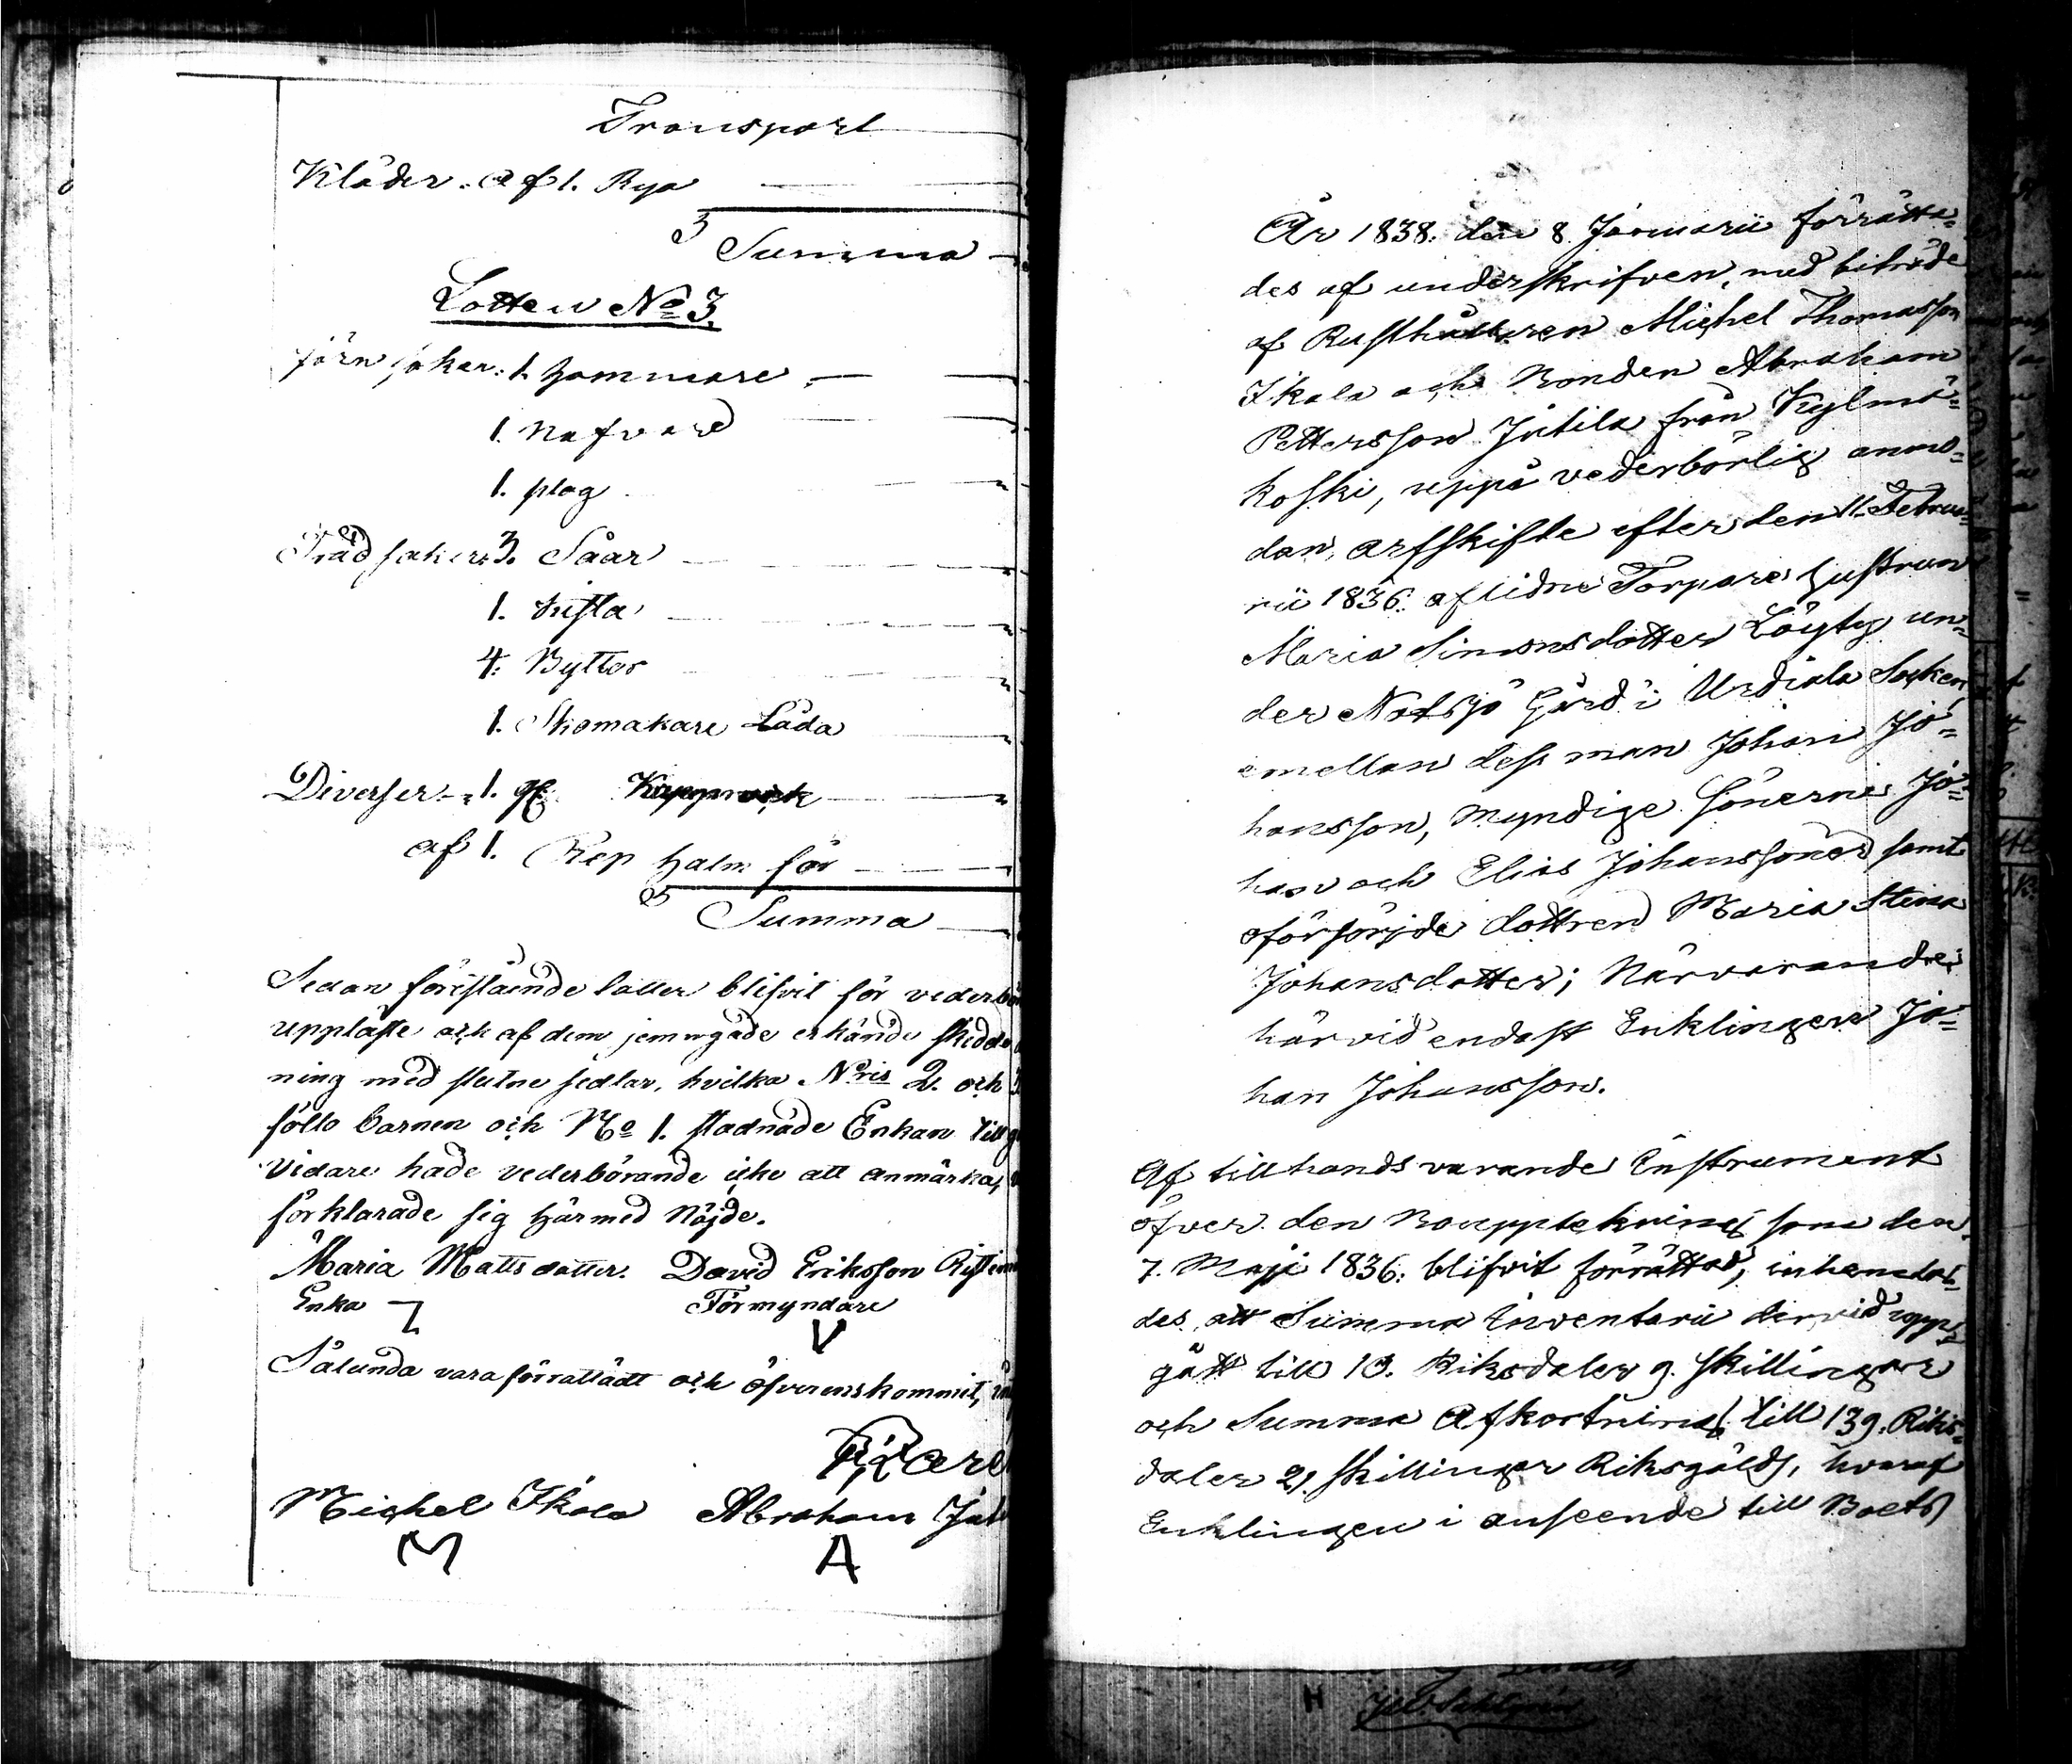 Transport
Kläder. af 1. Rya
Summa
Lotten No 3.
Järn saker. 1. hammare
1. nafvare
1. plog
Träd saker. 3. Såar
1.
4. Byttor
1. Skomakare Låda
Diverser. 1.
af 1. Rep halm för
Summa
Sedan förestående lotter blifvit för vederbö
upplaste och af dem jemngade erkände skedde
ning med slutne sedlar, hvilka Nris 2. och 3
föllo barnen och No 1. stadnade Enkan till g
Vidare hade vederbörande icke att anmärka,
förklarade sig härmed Nöjde.
Maria Mattsdotter. David Eriksson
Enka Förmyndare
V
Sålunda vara förrattadt och öfverenskommit,
Michel Ikala Abraham Juti
M A
År 1838. den 8 Januarii förrätta=
des af underskrifven, med biträde
af Rusthållaren Michel Thomasson
Ikala och Bonden Abraham
Pettersson Jutila från Kylmä=
koski, uppå vederbörlig anmo=
dan, arfskifte efter den 11 Februa=
rii 1836. aflidne Torpare hustrun
Maria Simonsdotter Löyty un=
der Notsjö Gård i Urdiala Socken,
emellan dess man Johan Jo=
hansson, myndige Sönerne Jo=
han och Elias Johanssöner samt
oförsörjde dottren Maria Stina
Johansdotter; Närvarande
härvid endast Enklingen Jo=
han Johansson.
Af tillhandsvarande Instrument
öfver den Bouppteckning som den
7. Maji 1836. blifvit förrättad, inhemta=
des, att Summa Inventarii dervid upp=
gått till 10. Riksdaler 9. Skillingar
och Summa Afkortning till 139. Riks=
daler 21. Skillingar Riksgälds, hvaraf
Enklingen i anseende till Boets